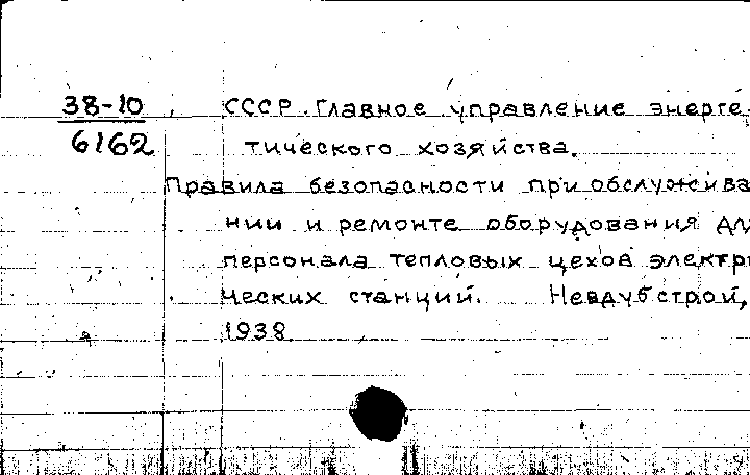 38-10 СССР. Главное управление энерге
6162 тического хозяйства.
Правила безопасности при обслужива
нии и ремонте оборудования дл
персонала тепловых цехов электри
ческих станций. Невдубстрой,
1938